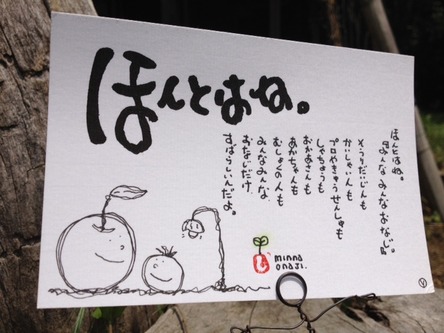 ほんとはね。
ほんとはね。
『みんな みんな おなじ』
そうりだいじんも
かいしゃいんも
プロやきゅうせんしゅも
しゃちょうも
おかあさんも
あかちゃんも
むしょくの人も
みんなみんな、
おなじだけ
すばらしいんだよ。
minna
onaji.